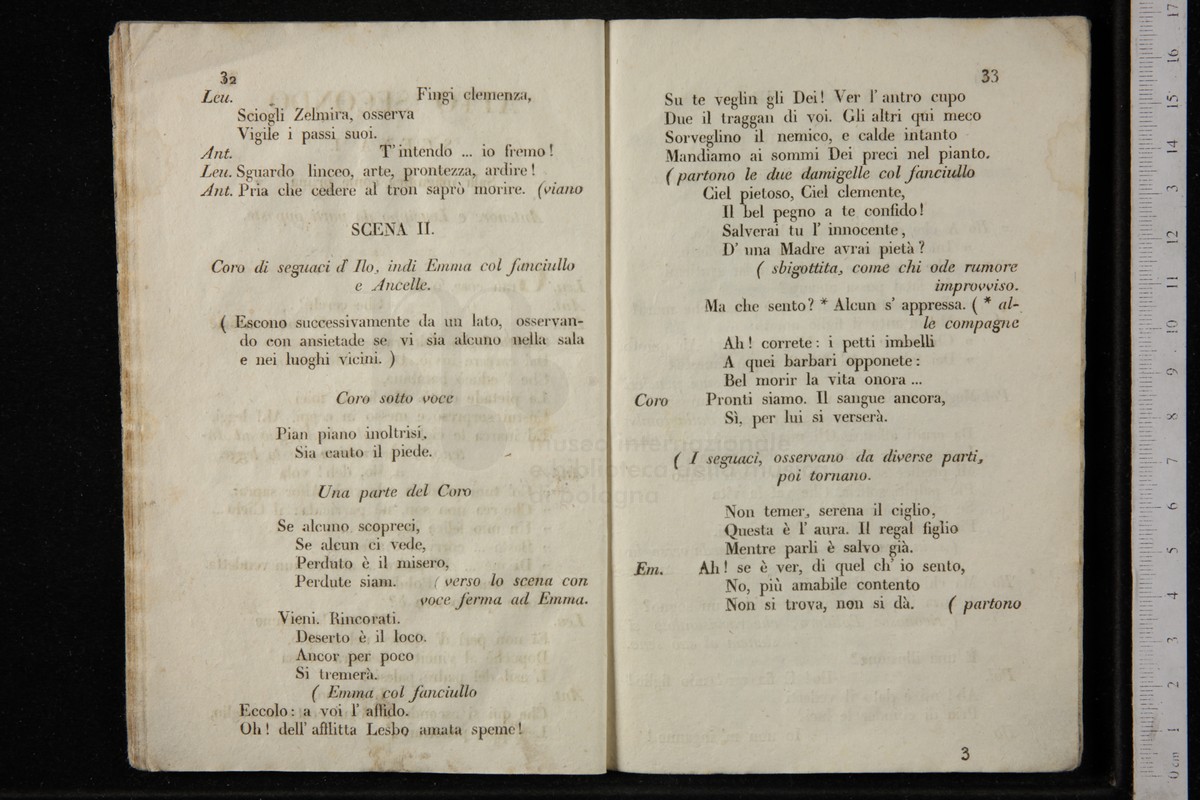 32
Leu. Fingi clemenza,
Sciogli Zelmira, osserva
Vigile i passi suoi.
Ant. T' intendo ... io fremo!
Leu. Sguardo linceo, arte, prontezza, ardire!
Ant. Pria che cedere al tron saprò morire. (viano
SCENA II.
Coro di seguaci d' Ilo, indi Emma col fanciullo
e Ancelle.
( Escono successivamente da un lato, osservan-
do con ansietade se vi sia alcuno nella sala
e nei luoghi vicini. )
Coro sotto voce
Pian piano inoltrisi,
Sia cauto il piede.
Una parte del Coro
Se alcuno scopreci,
Se alcun ci vede,
Perduto è il misero,
Perdute siam. ( verso lo scena con
voce ferma ad Emma.
Vieni. Rincorati.
Deserto è il loco.
Ancor per poco
Si tremerà.
( Emma col fanciullo
Eccolo: a voi l' affido.
Oh! dell' afflitta Lesbo amata speme!
33
Su te veglin gli Dei! Ver l' antro cupo
Due il traggan di voi. Gli altri qui meco
Sorveglino il nemico, e calde intanto
Mandiamo ai sommi Dei preci nel pianto.
( partono le due damigelle col fanciullo
Ciel pietoso, Ciel clemente,
Il bel pegno a te confido!
Salverai tu l' innocente,
D' una Madre avrai pietà?
( sbigottita, come chi ode rumore
improvviso.
Ma che sento? * Alcun s' appressa. ( * al-
le compagne
Ah! correte: i petti imbelli
A quei barbari opponete:
Bel morir la vita onora ...
Coro Pronti siamo. Il sangue ancora,
Sì, per lui si verserà.
( I seguaci, osservano da diverse parti,
poi tornano.
Non temer, serena il ciglio,
Questa è l' aura. Il regal figlio
Mentre parli è salvo già.
Em. Ah! se è ver, di quel ch' io sento,
No, più amabile contento
Non si trova, non si dà. ( partono
3
museo internazionale
e biblioteca della musica
di bologna
0 cm 1 2 3 4 5 6 7 8 9 10 11 12 13 14 15 16 17